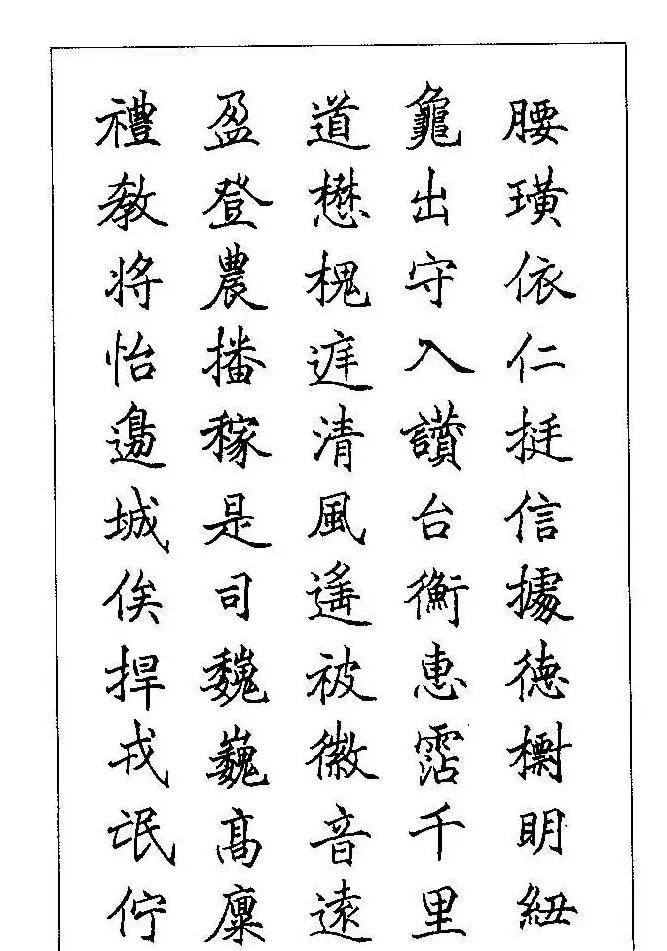 腰璜依仁挺信據德檦明紐
龜出守入讚台衡惠霑千里
道懋槐遅清風遙被徽音遠
盈登農播稼是司魏巍高廩
禮教將怡邊城俟捍戎氓佇